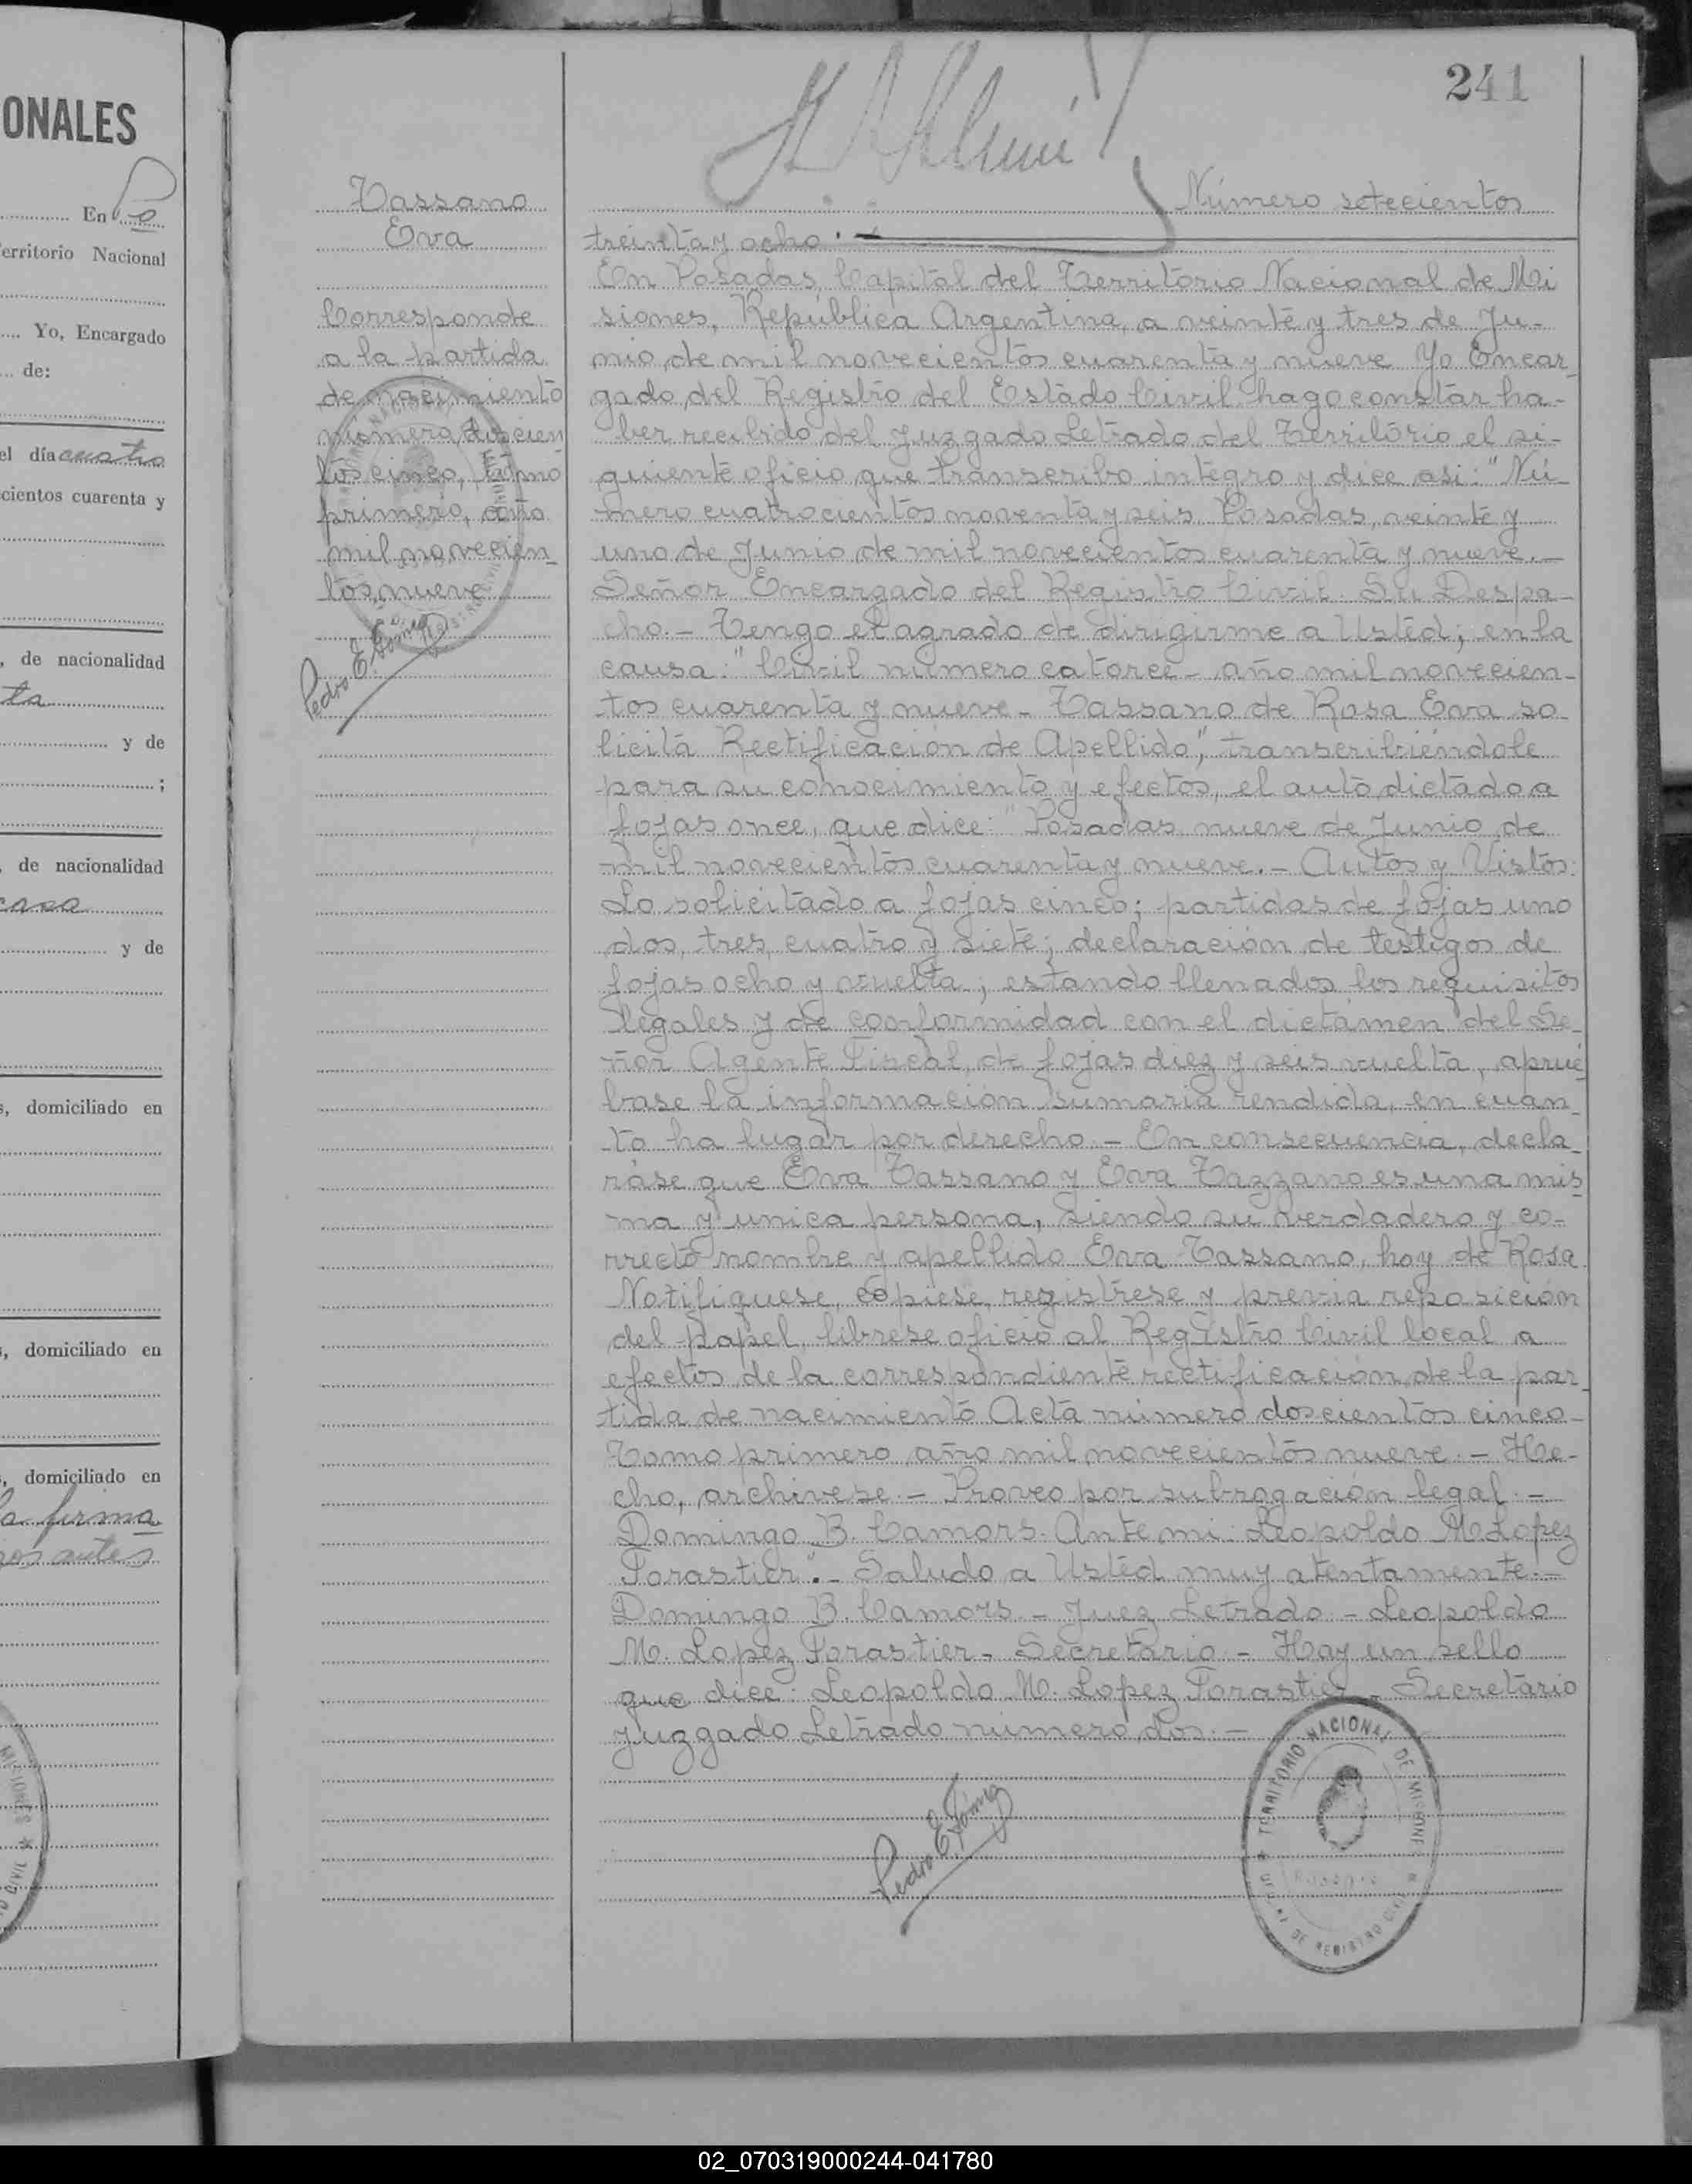 ONALES
En Po
erritorio Nacional
Yo, Encargado
de:
el día cuatro
cientos cuarenta y
, de nacionalidad
ta
y de
;
, de nacionalidad
casa
y de
s, domiciliado en
s, domiciliado en
, domiciliado en
la firma
antes
241
Tassano
Eva
Corresponde
a la partida
de nacimiento
número doscien
tos cinco, tomo
primero, año
mil novecien_
tos nueve
Pedro E. Gómez
Número setecientos
treinta y ocho. —
En Posadas, Capital del Territorio Nacional de Mi
siones, República Argentina, a veinte y tres de Ju-
nio de mil novecientos cuarenta y nueve Yo Encar_
gado del Registro del Estado Civil hago constar ha-
ber recibido del Juzgado Letrado del Territorio el si-
guiente oficio que transcribo integro y dice asi: "Nú_
mero cuatrocientos noventa y seis. Posadas, veinte y
uno de Junio de mil novecientos cuarenta y nueve.—
Señor Encargado del Registro Civil. Su Despa-
cho.— Tengo el agrado de dirigirme a Usted; en la
causa: "Civil número catorce - año mil novecien-
tos cuarenta y nueve - Tassano de Rosa Eva so_
licita Rectificación de Apellido", transcribiéndole
para su conocimiento y efectos, el auto dictado a
fojas once, que dice: "Posadas nueve de Junio de
mil novecientos cuarenta y nueve.— Autos y Vistos:
Lo solicitado a fojas cinco; partidas de fojas uno
dos, tres, cuatro y siete; declaración de testigos de
fojas ocho y vuelta; estando llenados los requisitos
legales y de conformidad con el dictamen del Se_
ñor Agente Fiscal, de fojas diez y seis vuelta, aprué_
base la información sumaria rendida, en cuan_
to ha lugar por derecho.— En consecuencia, decla_
ráse que Eva Tassano y Eva Tazzano es una mis_
ma y unica persona, siendo su verdadero y co-
rrecto nombre y apellido Eva Tassano, hoy de Rosa
Notifiquese, cópiese, registrese y previa reposición
del papel, librese oficio al Registro Civil local a
efectos de la correspondiente rectificación de la par_
tida de nacimiento Acta número doscientos cinco_
Tomo primero año mil novecientos nueve.— He-
cho, archivese.— Proveo por subrogación legal.—
Domingo B. Camors. Ante mi: Leopoldo M. Lopez
Forastier".— Saludo a Usted muy atentamente.—
Domingo B. Camors — Juez Letrado — Leopoldo
M. Lopez Forastier — Secretario — Hay un sello
que dice: Leopoldo M. Lopez Forastier — Secretario
Juzgado Letrado número dos.—
Pedro E. Gómez
TERRITORIO NACIONAL DE MISIONES
POSADAS
DE REGISTRO CIVIL
02_070319000244-041780